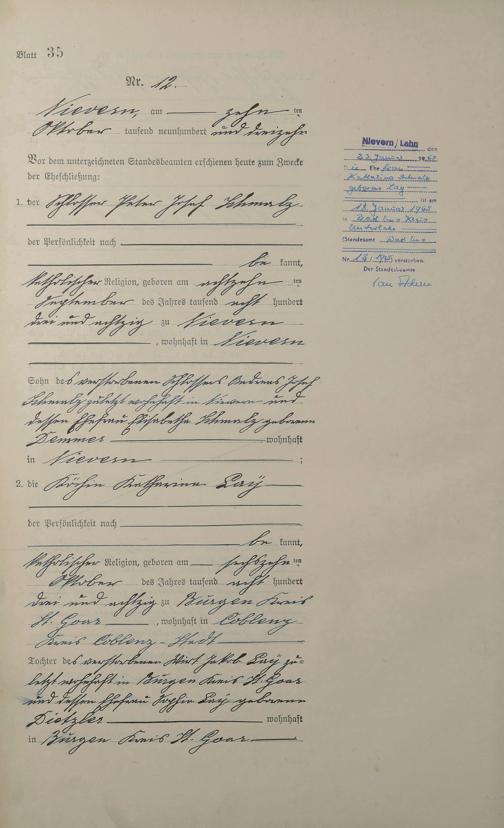 Blatt 35
Nr. 12.
Nievern, am zehn ten
Oktober tausend neunhundert und dreizehn
Vor dem unterzeichneten Standesbeamten erschienen heute zum Zwecke
der Eheschließung:
1. der Schlosser Peter Josef Schmalz
der Persönlichkeit nach
be kannt,
katholischer Religion, geboren am achtzehn ten
September des Jahres tausend acht hundert
drei und achtzig zu Nievern
, wohnhaft in Nievern
Sohn des verstorbenen Schlossers Andreas Josef
Schmalz zuletzt wohnhaft in Nievern und
dessen Ehefrau Elisabetha Schmalz geborene
Demmer wohnhaft
in Nievern ;
2. die Köchin Katharina Lay
der Persönlichkeit nach
be kannt,
katholischer Religion, geboren am sechszehn ten
Oktober des Jahres tausend acht hundert
drei und achtzig zu Burgen Kreis
St. Goar , wohnhaft in Coblenz
Kreis Coblenz-Stadt
Tochter des verstorbenen Wirt Jakob Lay zu-
letzt wohnhaft in Burgen Kreis St. Goar
und dessen Ehefrau Sophia Lay geborene
Dietzler wohnhaft
in Burgen Kreis St. Goar
Nievern/Lahn, den
23. Januar 19
Die Ehefrau
Katharina Schmalz
geborene Lay
ist am
Januar
in Bad Ems Kreis
Unterlahn
(Standesamt Bad Ems
Nr. verstorben.
Der Standesbeamte